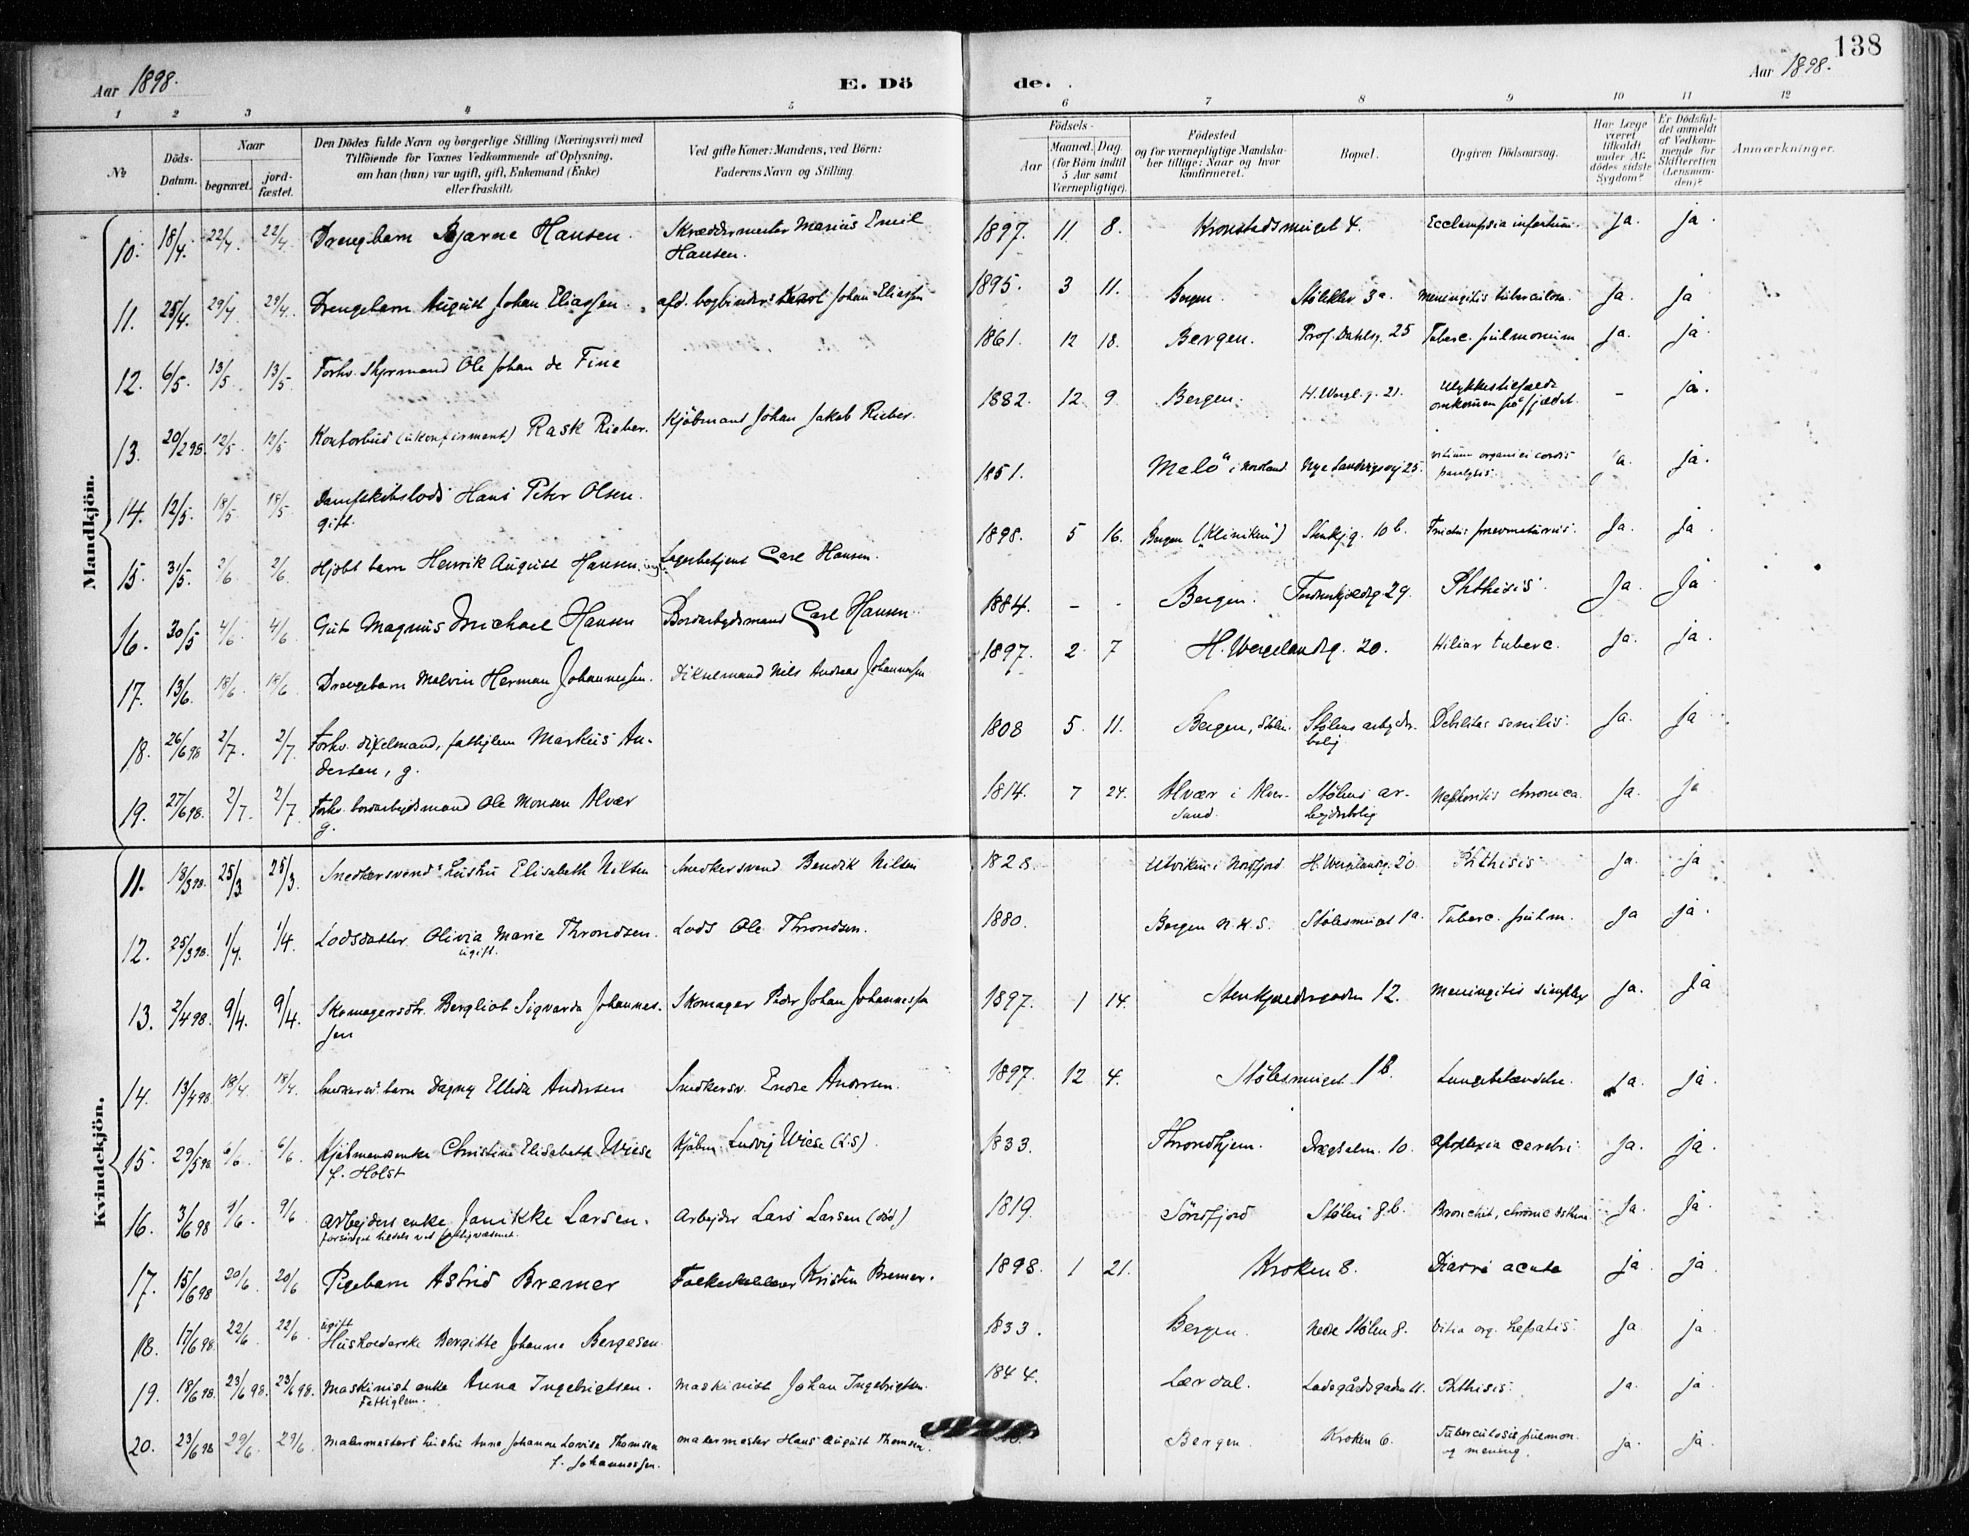 138
Aar 1898.
E. Dö
de.
Aar 1898.
1 2 3 4 5 6 7 8 9 10 11 12
No
Döds-
Datum.
Naar
begravet.
jord-
fæstet.
Den Dödes fulde Navn og borgerlige Stilling (Næringsvei) med
Tilföiende for Voxnes Vedkommende af Oplysning,
om han (hun) var ugift, gift, Enkemand (Enke)
eller fraskilt.
Ved gifte Koner: Mandens, ved Börn:
Faderens Navn og Stilling.
Födsels-
Aar
Maaned. Dag.
(for Börn indtil
5 Aar samt
Værnepligtige).
Födested
og for værnepligtige Mandska-
ber tillige: Naar og hvor
konfirmeret.
Bopæl.
Opgiven Dödsaarsag.
Har Læge
været
tilkaldt
under Af-
dödes sidste
Sygdom?
Er Dödsfal-
det anmeldt
af Vedkom-
mende for
Skifteretten
(Lensman-
den)?
Anmærkninger.
Mandkjön.
10. 18/4. 22/4. 22/4. Drengebarn Bjarne Hansen. Skræddermester Marius Emil
Hansen. 1897. 11 8. Kronstadsmuget 4. Ja. ja.
11. 25/4. 29/4 29/4. Drengebarn August Johan Eliassen. afd. bogbinder Johan Eliassen 1895. 3 11. Bergen. 3a. Meningitis tuberculosa. Ja. ja
12. 6/5. 13/5 13/5. Forhv. Styrmand Ole Johan de Fine 1861. 12 18. Bergen. Prof. Dahlsg. 25 Tuberc. pulmonum Ja. ja
13. 20/2 98. 12/5 12/5 Kontorbud (ukonfirmeret) Rask Rieber. Kjöbmand Johan Jakob Rieber. 1882. 12 9. Bergen. H. Wergl. g. 21. Ulykkestilfælde
omkommen på fjeldet. - ja.
14. 12/5. 18/5 18/5 Dampskibslods Hans Peter Olsen.
gift. 1851. Melö i Nordland Nye Sandvigsvej 25. vitium organici cordis
paralysis. ja.
15. 31/5. 2/6 2/6. Henrik August Hansen. Lagerbetjent Carl Hansen. 1898. 5 16. Bergen ("Kliniken") Stenkj.g. 10 b. Ja. ja
16. 30/5 4/6 4/6 Gut Magnus Michael Hansen Bordarbejdsmand Carl Hansen. 1884. - - Bergen. 29. Phthisis. Ja. Ja
17. 13/6. 18/6. 18/6 Drengebarn Malvin Herman Johannessen. Dikselmand Nils Andreas Johannessen 1897. 2 7 H. Wergelandsg. 20. Miliar tuberc. Ja. ja.
18. 26/6 98 2/7. 2/7 Forhv. dixelmand, fattiglem Markus An-
dersen, g. 1808 5. 11. Bergen, Stölen. Stölens arbejder-
bolig Debilitas senilis. Ja. ja
19. 27/6 98. 2/7. 2/7. Forhv. bordarbejdsmand Ole Monsen Alvær
g. 1814. 7 24. Alvær i Alver-
sund. Stölens ar-
bejderbolig Nephritis chronica. Ja. ja
Kvindekjön.
11. 18/3 98. 25/3 25/3. Snedkersvends hustru Elisabeth Nilsen Snedkersvend Bendik Nilsen 1828. Utviken i Nordfjord H. Wergelandsg. 20 Phthisis. Ja. ja
12. 25/3 98. 1/4. 1/4. Lodsdatter Olivia Marie Throndsen.
ugift. Lods Ole Throndsen. 1880. Bergen N. K. S. Stölesmuget 1a. Tuberc. pulm. Ja ja.
13. 2/4 98. 9/4. 9/4. Skomagersdtr. Bergliot Sigvarda Johannes-
sen Skomager Peder Johan Johannessen 1897. 1 14. Stenkjældergaden 12. Meningitis simplex Ja. Ja
14. 13/4 98 18/4 18/4. barn Dagny Ellida Andersen Snedkersv. Endre Andersen. 1897. 12 4. Stölesmuget 18. Lungebetændelse. Ja. ja.
15. 29/5 98 6/6 6/6. Kjöbmandsenke Christine Elisabeth Wiese
f. Holst Kjöbm. Ludvig Wiese (d.s) 1833. Throndhjem. Drægsalm. 10. Apoplexia cerebri. Ja. ja.
16. 3/6 98 9/6. 9/6 Arbejders enke Janikke Larsen.
forsörget tildels ved fattigvæsenet. Arbejder Lars Larsen (död) 1819. Söndfjord Stölen 8 b. Ja. ja.
17. 15/6 98 20/6 20/6 Pigebarn Astrid Bremer Kristen Bremer. 1898. 1 21. Kroken 8. Diarré acuta ja ja.
18. 17/6 98. 22/6. 22/6. ugift
Husholderske Bergitte Johanne Bergesen. 1833. Bergen. Nedre Stölen 8. Vitia org. hepatis. Ja. ja.
19. 18/6 98. 23/6 98. 23/6 98. Maskinist enke Anna Ingebrigtsen.
Fattiglem. Maskinist Johan Ingebrigtsen. 1844. Lærdal. Ladegårdsgaden 11. Phthisis. Ja. ja.
20. 23/6 98 29/6 29/6. Malermesters hustru Anna Johanne Lovise Thomsen
f. Johannessen. malermester Hans August Thomsen. Bergen. Kroken 6. Tuberculosis pulmon.
og mening. Ja. ja.